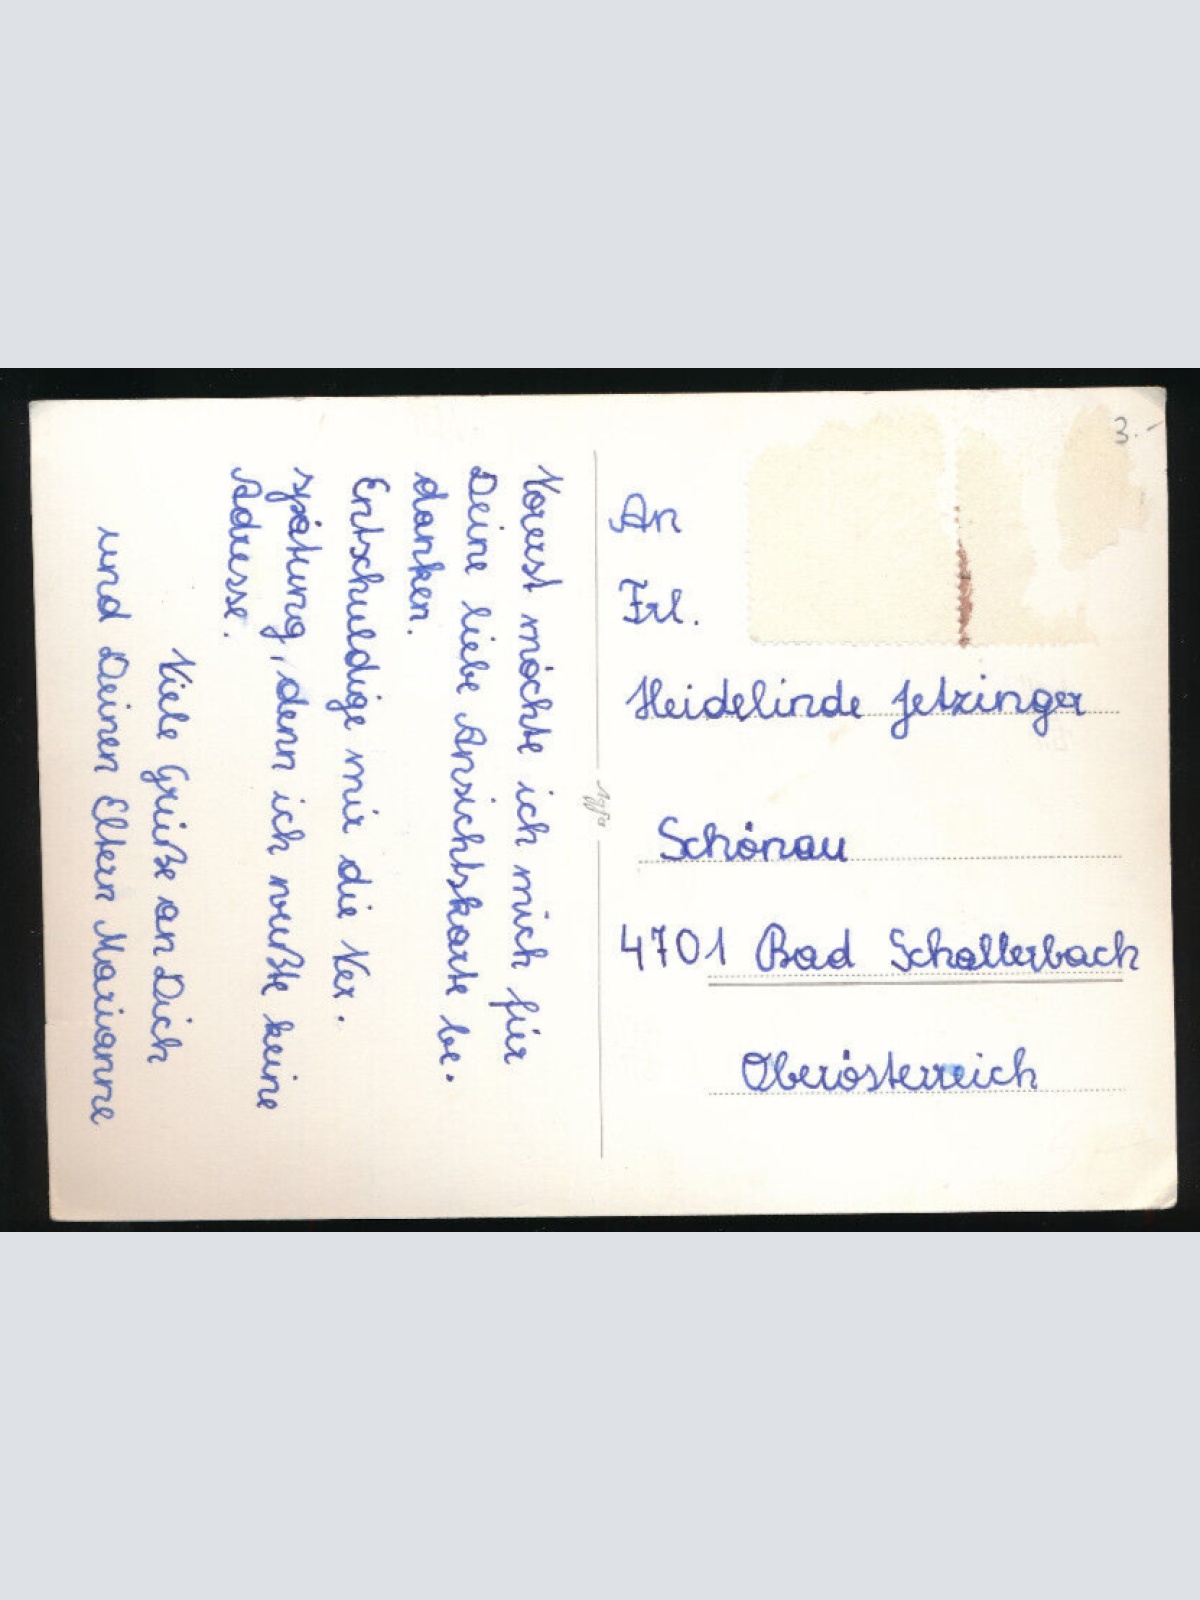 Vorerst möchte ich mich für
Deine liebe Ansichtskarte be.
danken.
Entschuldige mir die Ver.
spätung, denn ich wußte keine
Adresse.
Viele Grüße an Dich
und Deinen Eltern Marianne
3.-
An
Frl.
Heidelinde Jetzinger
Schönau
4701 Bad Schallerbach
Oberösterreich